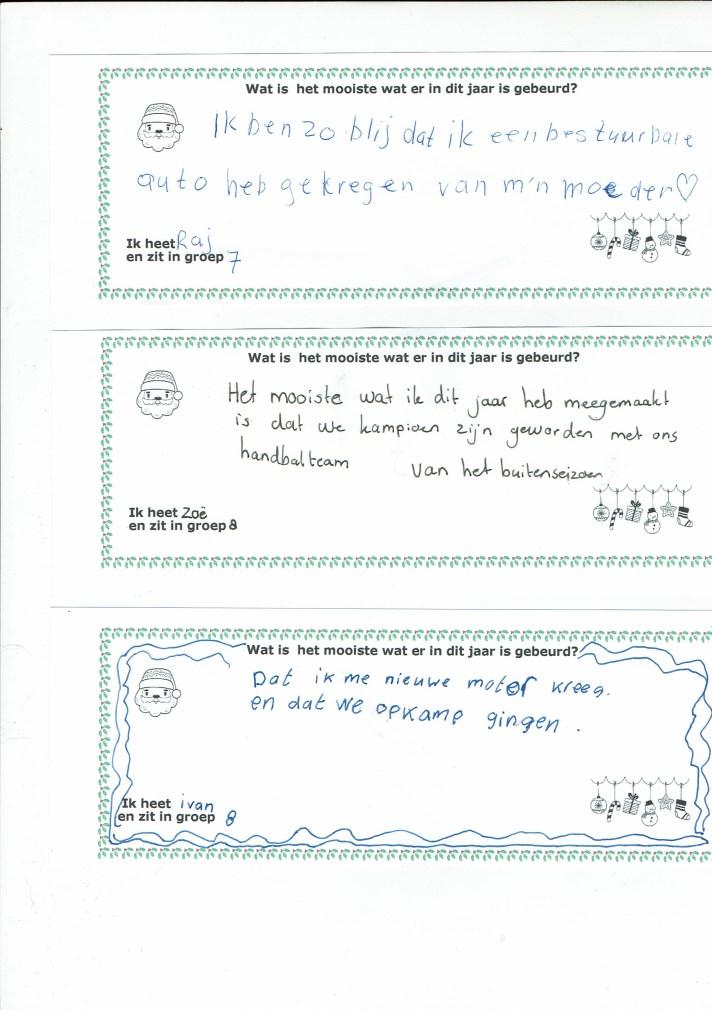 Wat is het mooiste wat er in dit jaar is gebeurd?
Ik ben zo blij dat ik een bestuurbare
auto heb gekregen van m'n moeder♡
Ik heet Raj
en zit in groep 7
Wat is het mooiste wat er in dit jaar is gebeurd?
Het mooiste wat ik dit jaar heb meegemaakt
is dat we kampioen zijn geworden met ons
handbalteam van het buitenseizoen
Ik heet Zoë
en zit in groep 8
Wat is het mooiste wat er in dit jaar is gebeurd?
Dat ik me nieuwe motor kreeg.
en dat we opkamp gingen.
Ik heet ivan
en zit in groep 8